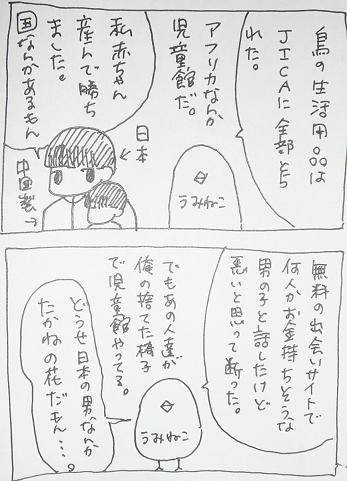 鳥の生活用品は
JICAに全部とら
れた。
アフリカなんか
児童館だ。
うみねこ
私赤ちゃん
産んで勝ち
ました。
国なんかあるもん
日本
中国製→
無料の出会いサイトで
何人かお金持ちそうな
男の子と話したけど
悪いと思って断った。
でもあの人達が
俺の捨てた椅子
で児童館やってる。
うみねこ
どうせ日本の男なんか
たかねの花だもん…。